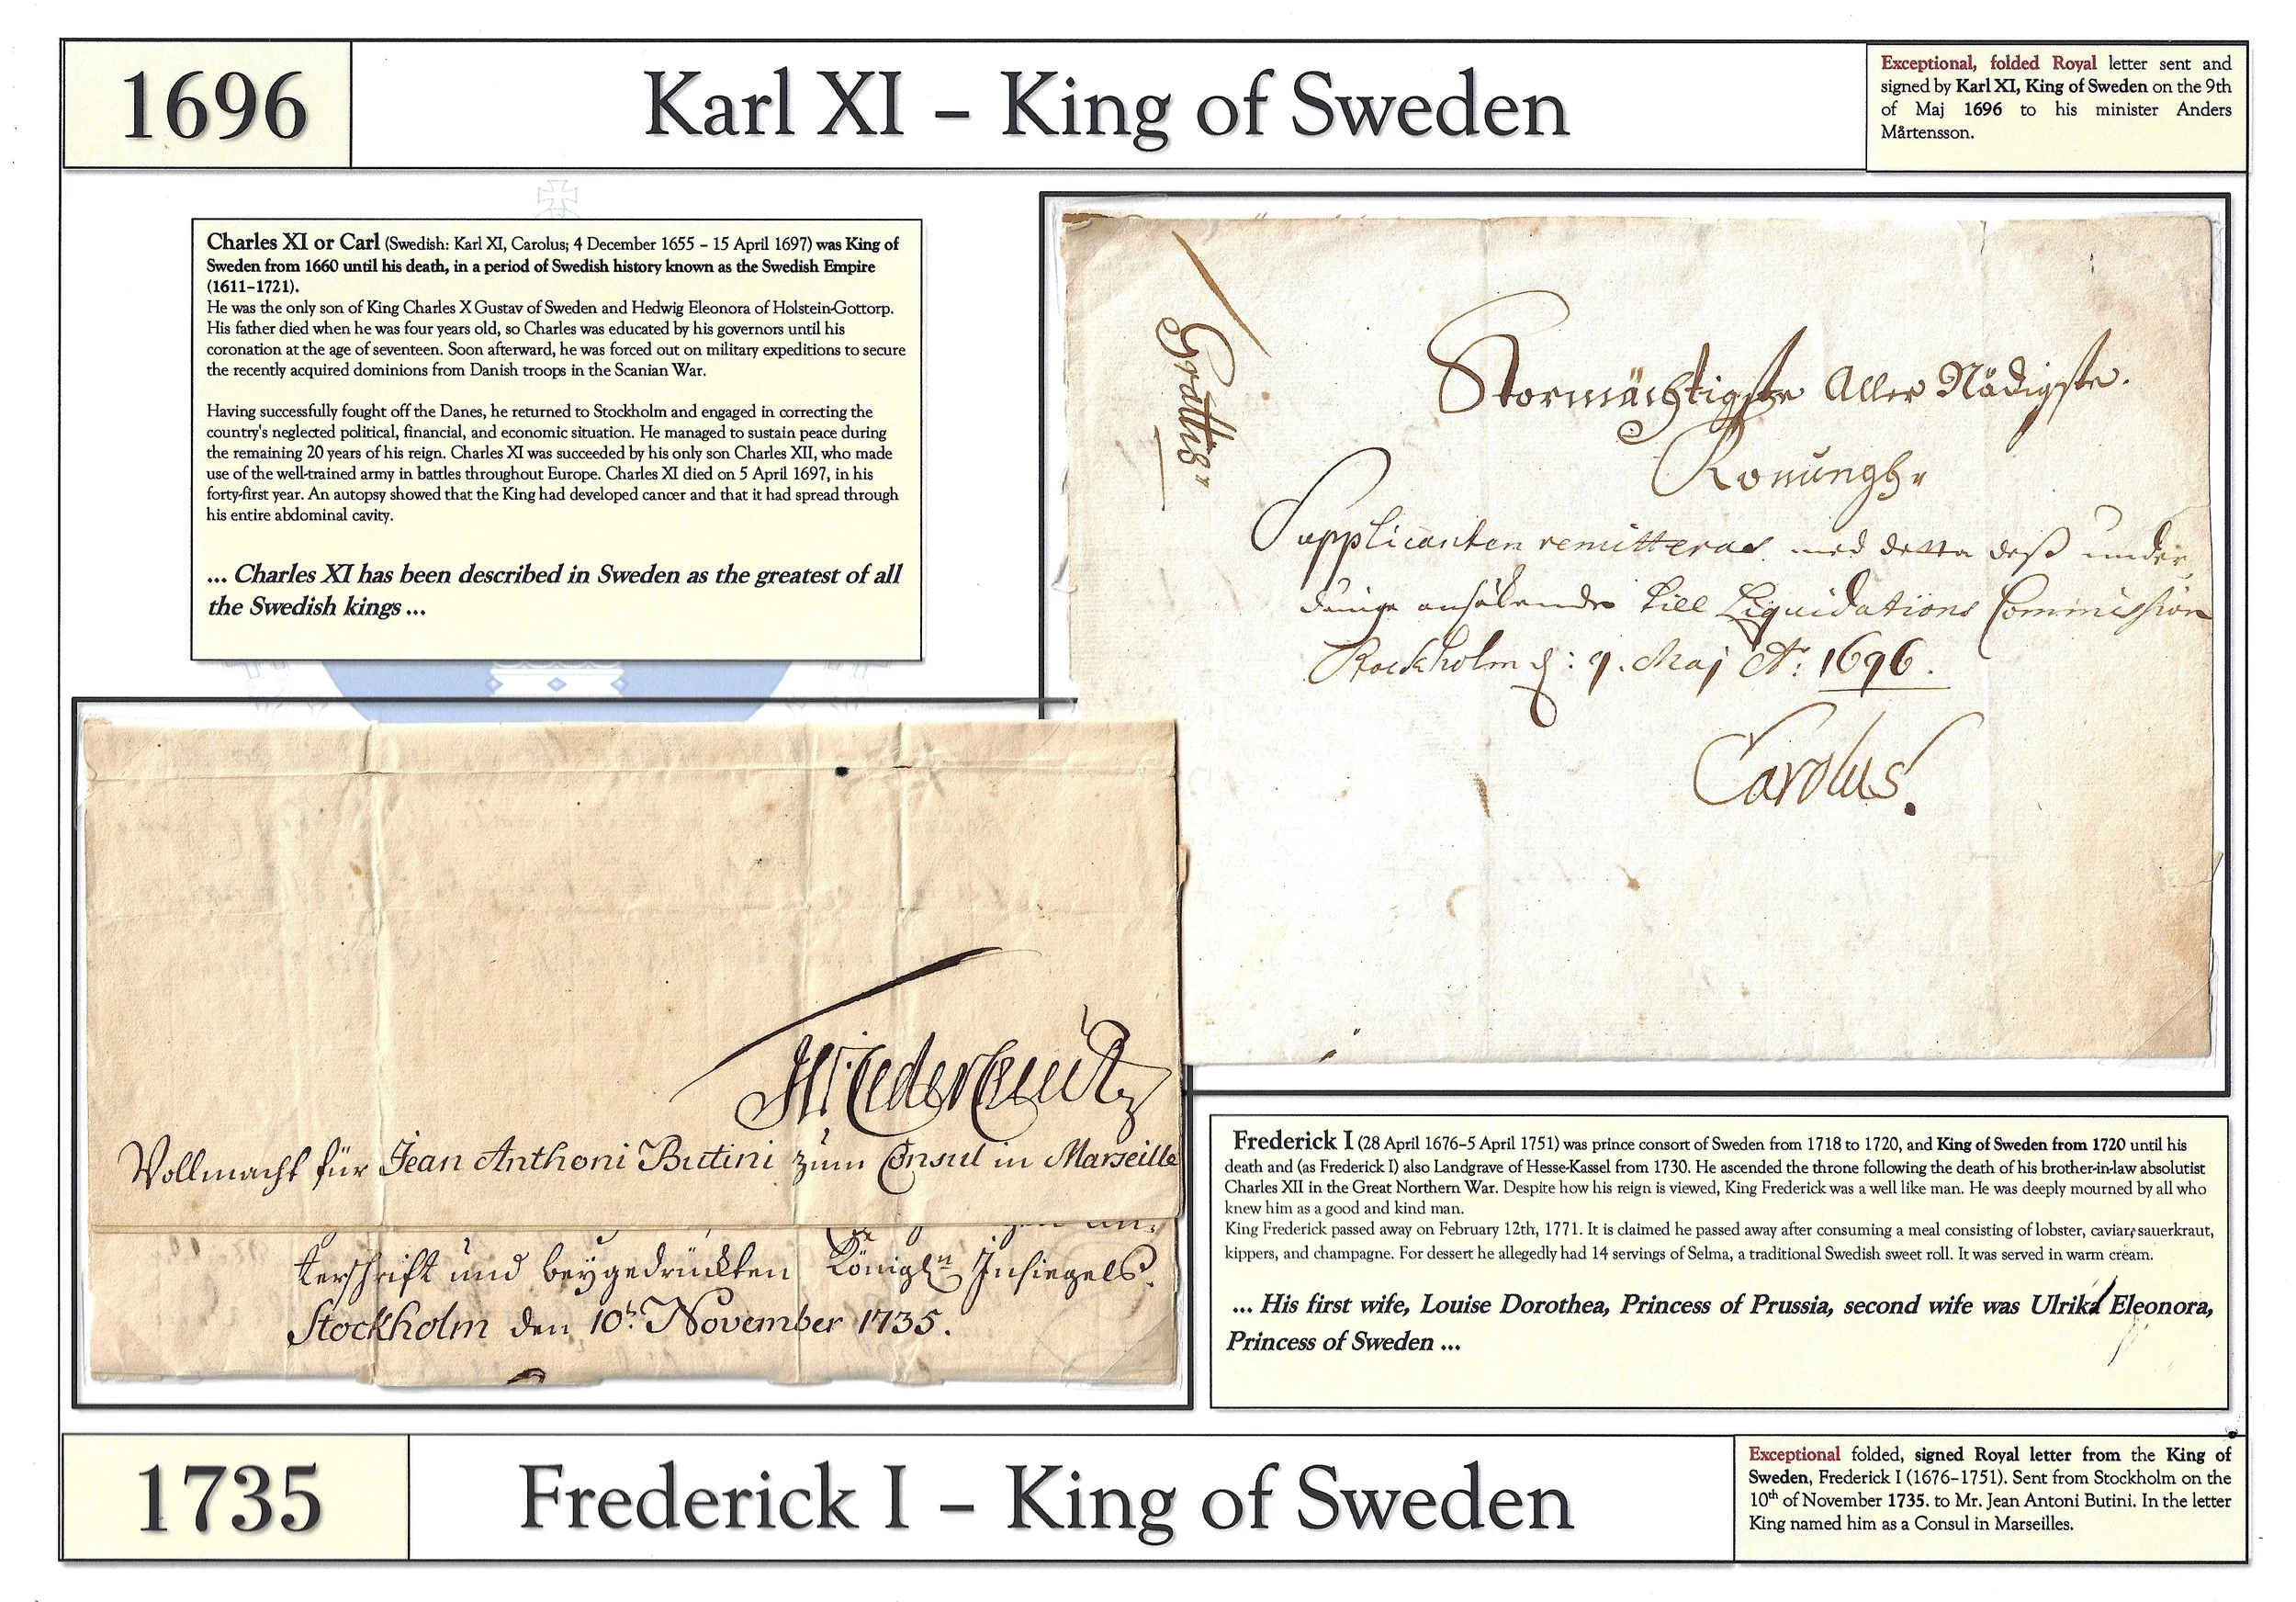 1696
Karl XI – King of Sweden
Exceptional, folded Royal letter sent and
signed by Karl XI, King of Sweden on the 9th
of Maj 1696 to his minister Anders
Mårtensson.
Charles XI or Carl (Swedish: Karl XI, Carolus; 4 December 1655 – 15 April 1697) was King of
Sweden from 1660 until his death, in a period of Swedish history known as the Swedish Empire
(1611–1721).
He was the only son of King Charles X Gustav of Sweden and Hedwig Eleonora of Holstein-Gottorp.
His father died when he was four years old, so Charles was educated by his governors until his
coronation at the age of seventeen. Soon afterward, he was forced out on military expeditions to secure
the recently acquired dominions from Danish troops in the Scanian War.
Having successfully fought off the Danes, he returned to Stockholm and engaged in correcting the
country's neglected political, financial, and economic situation. He managed to sustain peace during
the remaining 20 years of his reign. Charles XI was succeeded by his only son Charles XII, who made
use of the well-trained army in battles throughout Europe. Charles XI died on 5 April 1697, in his
forty-first year. An autopsy showed that the King had developed cancer and that it had spread through
his entire abdominal cavity.
... Charles XI has been described in Sweden as the greatest of all
the Swedish kings ...
Grattis
Stormächtigste Aller Nådigste.
Konungh
Supplicanten remitteras med detta deß under
dånige ansökende till Liquidations Commission
Stockholm d: 9. Maj Ao: 1696.
Carolus.
Vollmacht für Jean Anthoni Butini zum Consul in Marseille
terschrift und beygedrückten Königln Insiegels.
Stockholm den 10t. November 1735.
Frederick I (28 April 1676–5 April 1751) was prince consort of Sweden from 1718 to 1720, and King of Sweden from 1720 until his
death and (as Frederick I) also Landgrave of Hesse-Kassel from 1730. He ascended the throne following the death of his brother-in-law absolutist
Charles XII in the Great Northern War. Despite how his reign is viewed, King Frederick was a well like man. He was deeply mourned by all who
knew him as a good and kind man.
King Frederick passed away on February 12th, 1771. It is claimed he passed away after consuming a meal consisting of lobster, caviar, sauerkraut,
kippers, and champagne. For dessert he allegedly had 14 servings of Selma, a traditional Swedish sweet roll. It was served in warm cream.
... His first wife, Louise Dorothea, Princess of Prussia, second wife was Ulrika Eleonora,
Princess of Sweden ...
1735
Frederick I – King of Sweden
Exceptional folded, signed Royal letter from the King of
Sweden, Frederick I (1676–1751). Sent from Stockholm on the
10th of November 1735. to Mr. Jean Antoni Butini. In the letter
King named him as a Consul in Marseilles.